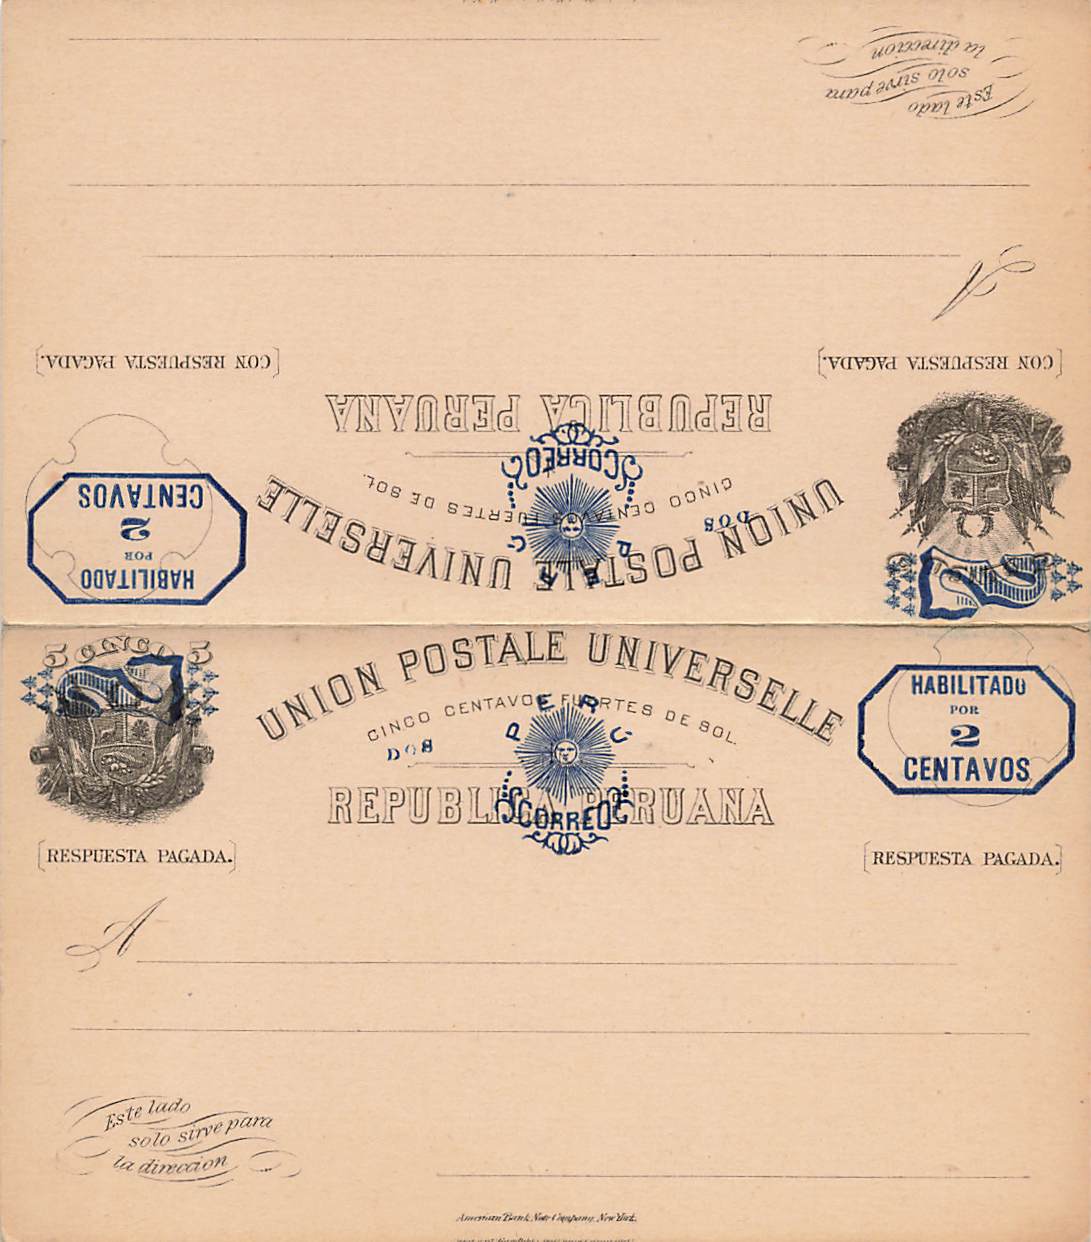 Este lado
solo sirve para
la direccion
A
[CON RESPUESTA PAGADA.]
[CON RESPUESTA PAGADA.]
REPUBLICA PERUANA
CORREOS
CINCO CENTAVOS FUERTES DE SOL.
DOS
PERU
UNION POSTALE UNIVERSELLE
HABILITADO
POR
2
CENTAVOS
2
5 CINCO 5
2
UNION POSTALE UNIVERSELLE
CINCO CENTAVOS FUERTES DE SOL.
DOS
PERU
REPUBLICA PERUANA
CORREOS
HABILITADO
POR
2
CENTAVOS
[RESPUESTA PAGADA.]
[RESPUESTA PAGADA.]
A
Este lado
solo sirve para
la direccion
American Bank Note Company, New York.